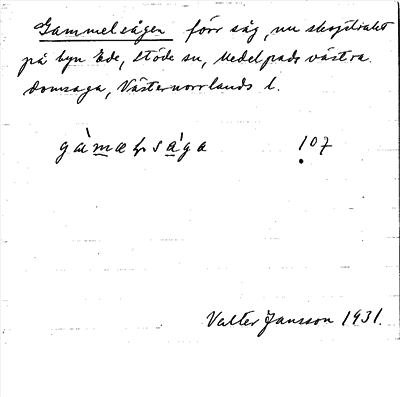 Gammelsågen förr såg, nu skogstrakt
på byn Ede, Stöde sn, Medelpads västra
domsaga, Västernorrlands l.
gàmælsága 107
Valter Jansson 1931.